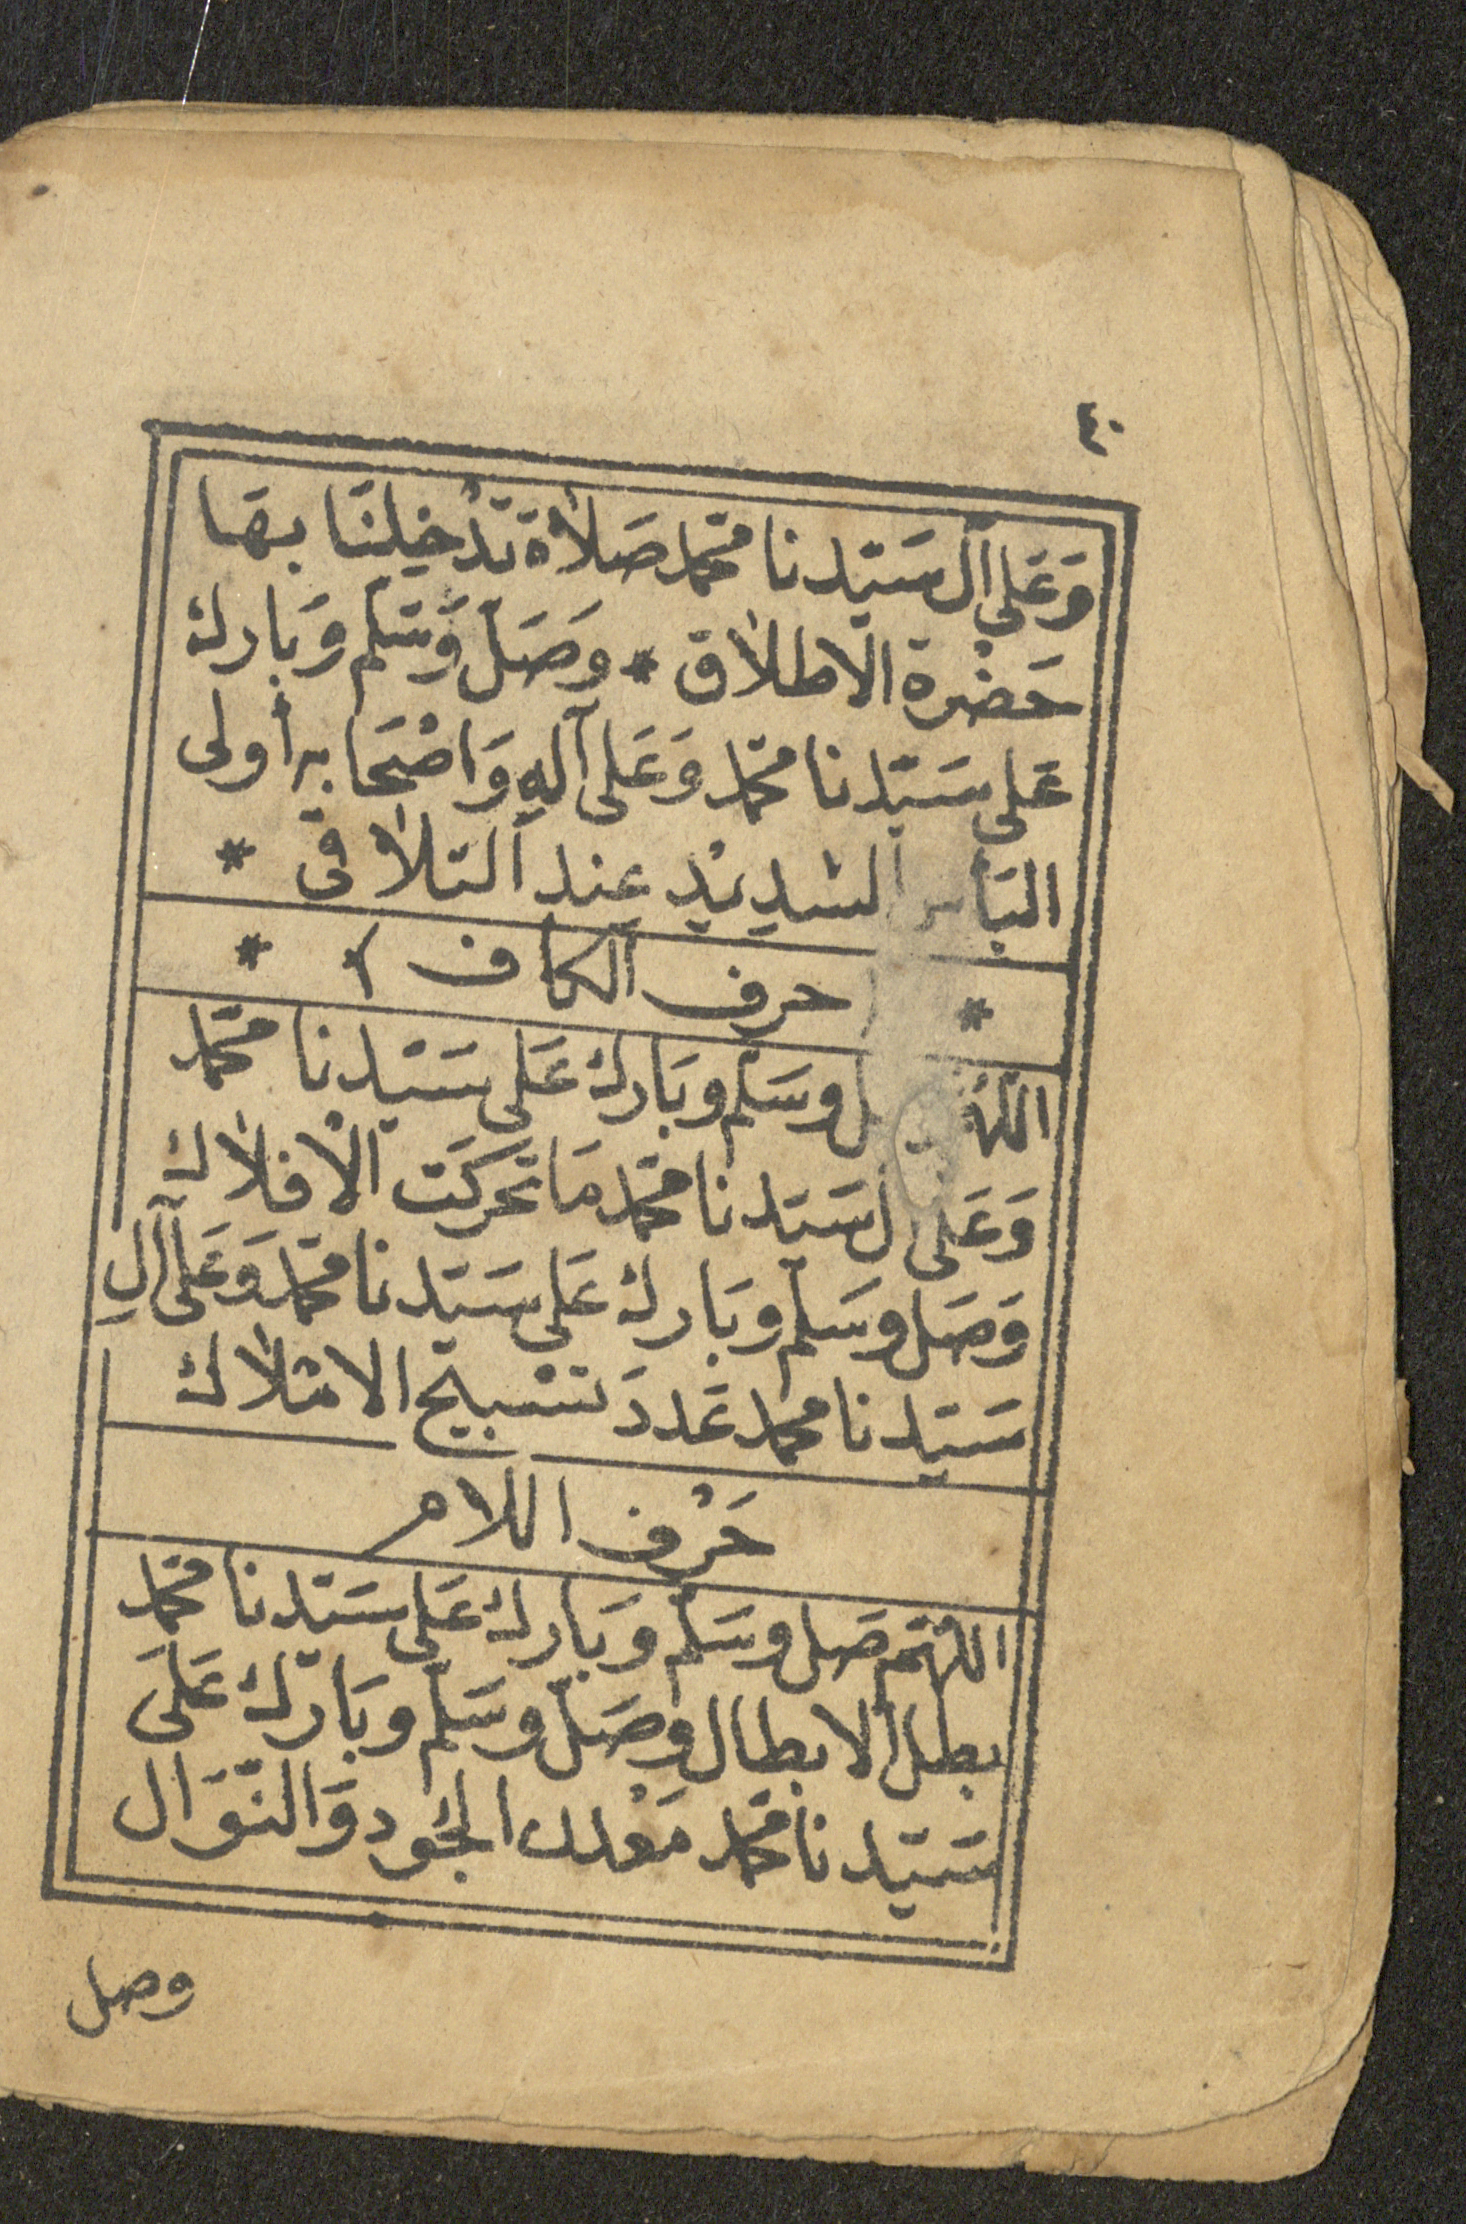 ٤٠
وَعَلى آل سَيّدنا محمّد صَلاٰة تدْخِلنَا بهَا
حَضْرة الاطلاٰق * وَصَلّ وَسَلّم وَبارك
عَلى سَيّدنا محمّد وَعَلى آلهِ وَاصْحَابه أولى
البَأس الشديْدِ عِند التلاٰقى *
* حرف الكاف * *
وسَلّم وبَارك عَلى سَيّدنا محمّد
وَعَلى سَيّدنا محمّد مَا تحَركَت الافلاٰك
وَصَل وسَلّم وبَارك عَلى سَيّدنا محمّد وَعَلى آلِ
سَيّدنا محمد عَددَ تسْبيح الاملاٰك
حَرْف اللام
اللهُم صَل وسَلّم وبَارك عَلى سَيّدنا محمّد
بطل الابطال وصَلّ وسَلّم وبَارك عَلَى
سَيّدنا محمّد مَعْدن الجُود وَالنّوَال
وصل